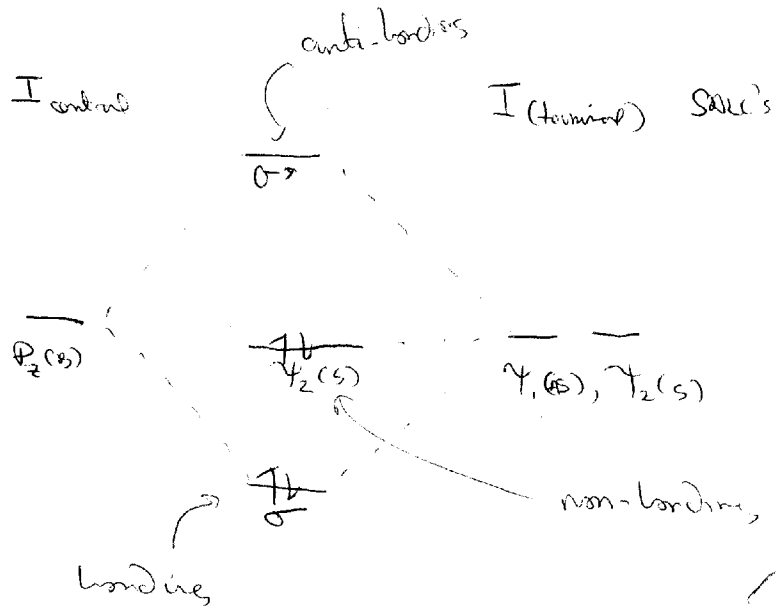 anti-bonding
I central
I (terminal) SALC's
σ*
P_z(as)
Ψ_2(s)
Ψ_1(as), Ψ_2(s)
σ
non-bonding
bonding